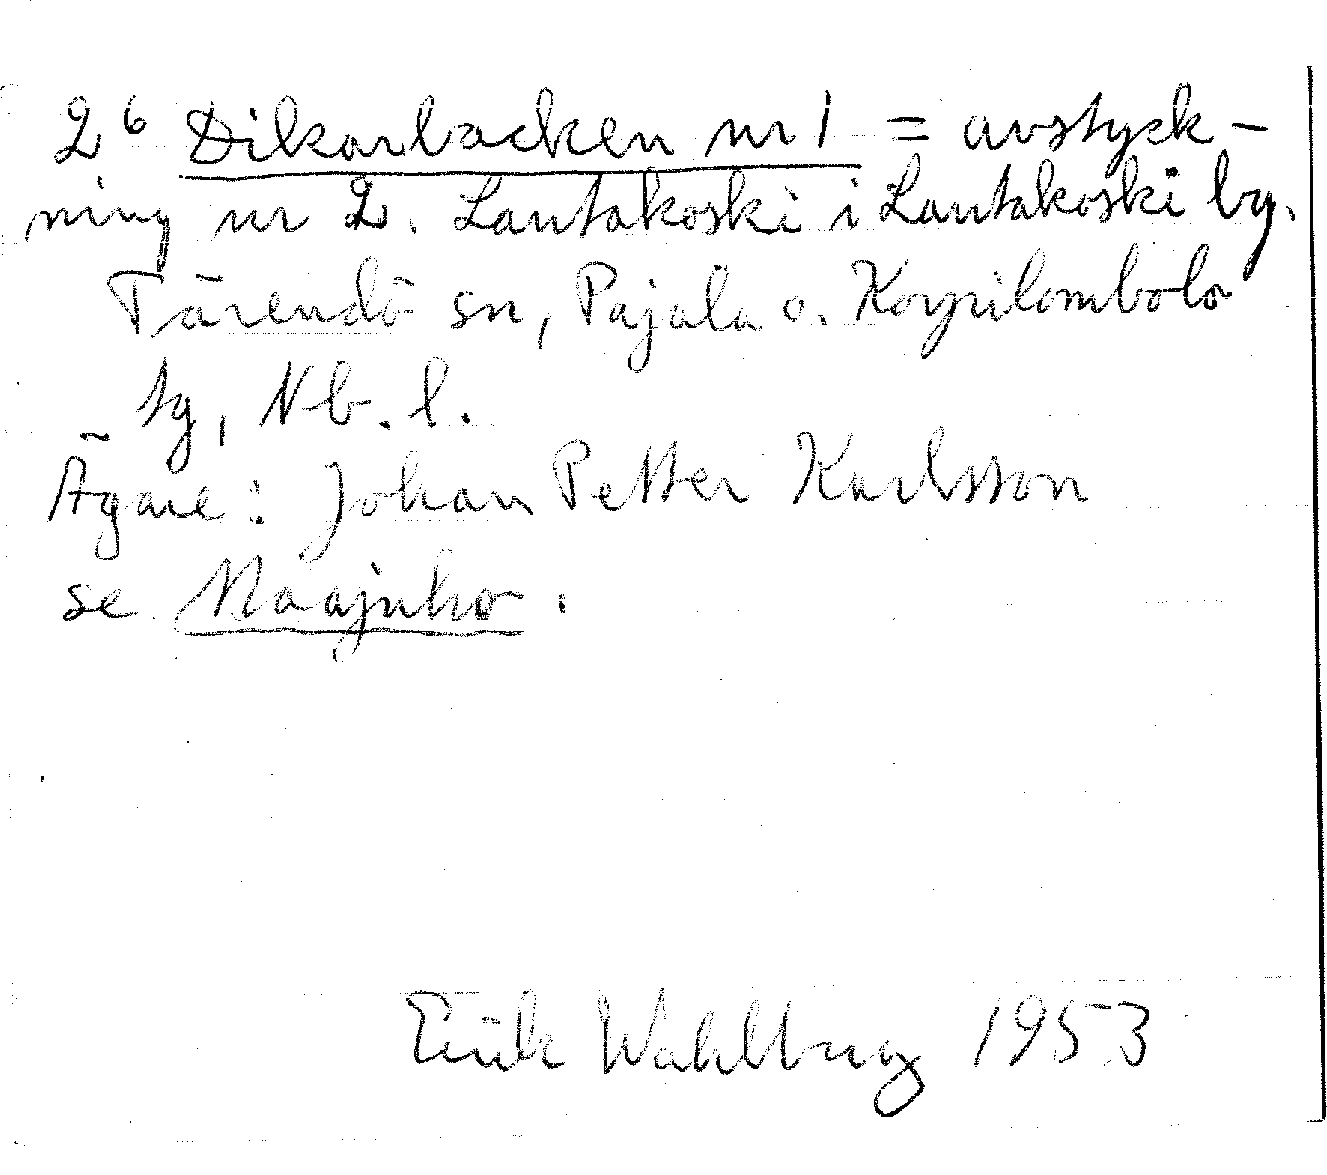 2⁶ Dikarbacken nr 1 = avstyck-
ning nr 2. Lantakoski i Lantakoski by.
Tärendö sn, Pajala o. Korpilombolo
tg, Nb. l.
Ägare: Johan Petter Karlsson
se Naajuho.
Erik Wahlberg 1953